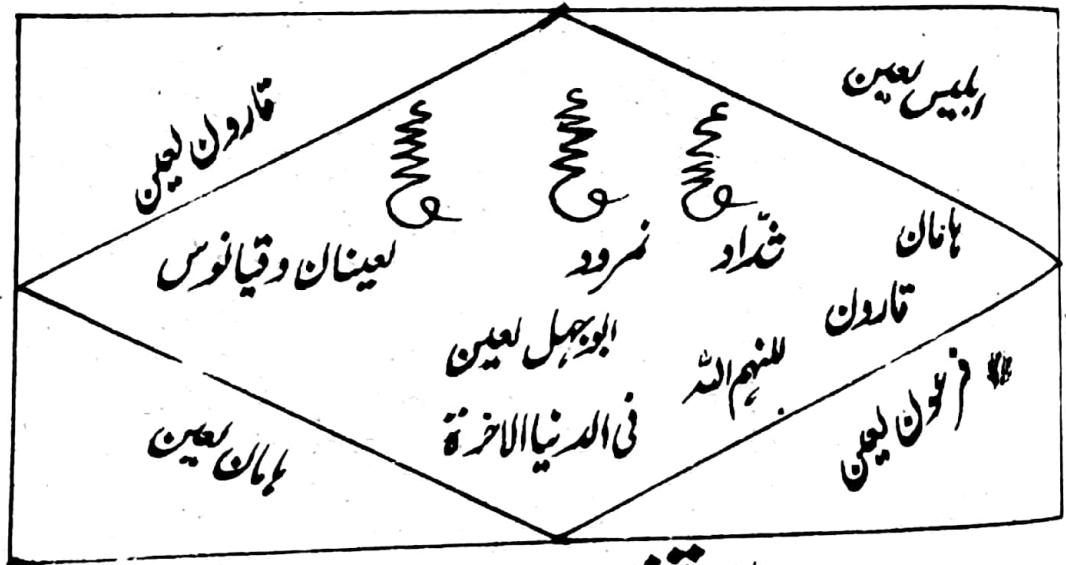 ابلیس لعین
قارون لعین
ہامان
شدّاد
نمرود
لعینان دقیانوس
قارون
ابوجہل لعین
للنہم اللہ
فی الدنیا الاخرۃ
فرعون لعین
ہامان لعین